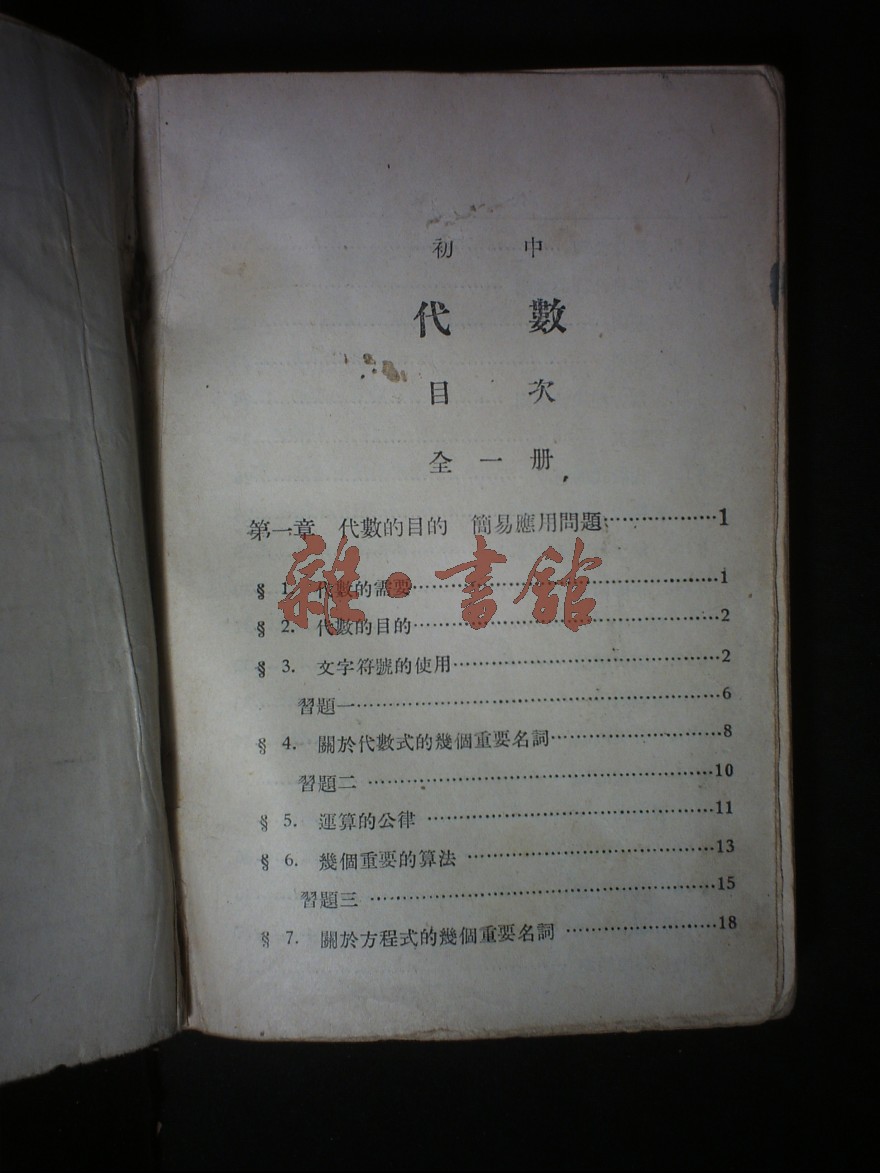 初中
代數
目次
全一册
第一章 代數的目的 簡易應用問題……………1
§ 1. 代數的需要……………1
§ 2. 代數的目的……………2
§ 3. 文字符號的使用……………2
習題一……………6
§ 4. 關於代數式的幾個重要名詞……………8
習題二……………10
§ 5. 運算的公律……………11
§ 6. 幾個重要的算法……………13
習題三……………15
§ 7. 關於方程式的幾個重要名詞……………18
雜·書館